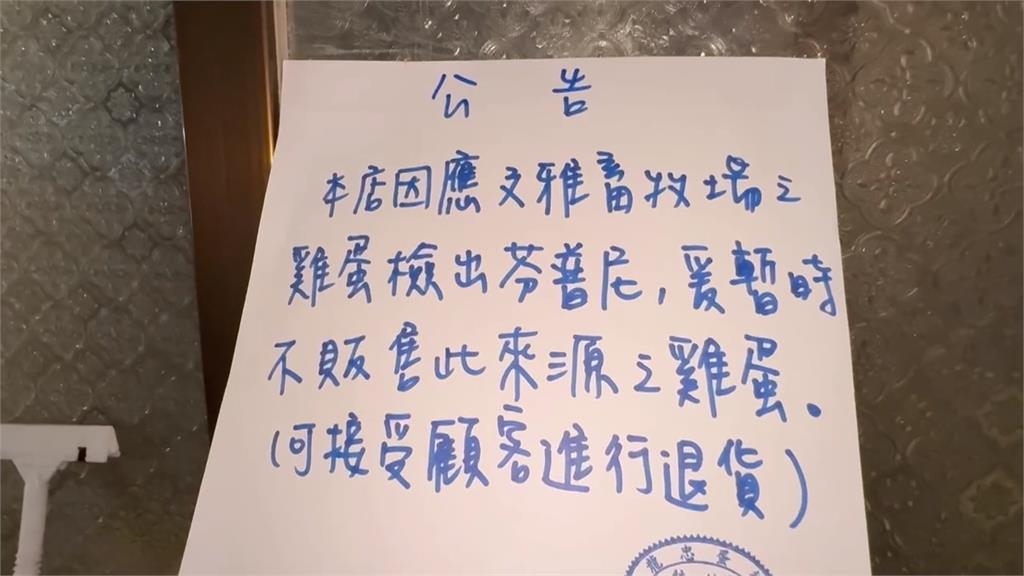 公告
本店因應文雅畜牧場之
雞蛋檢出芬普尼,爰暫時
不販售此來源之雞蛋。
(可接受顧客進行退貨)
龍忠蛋